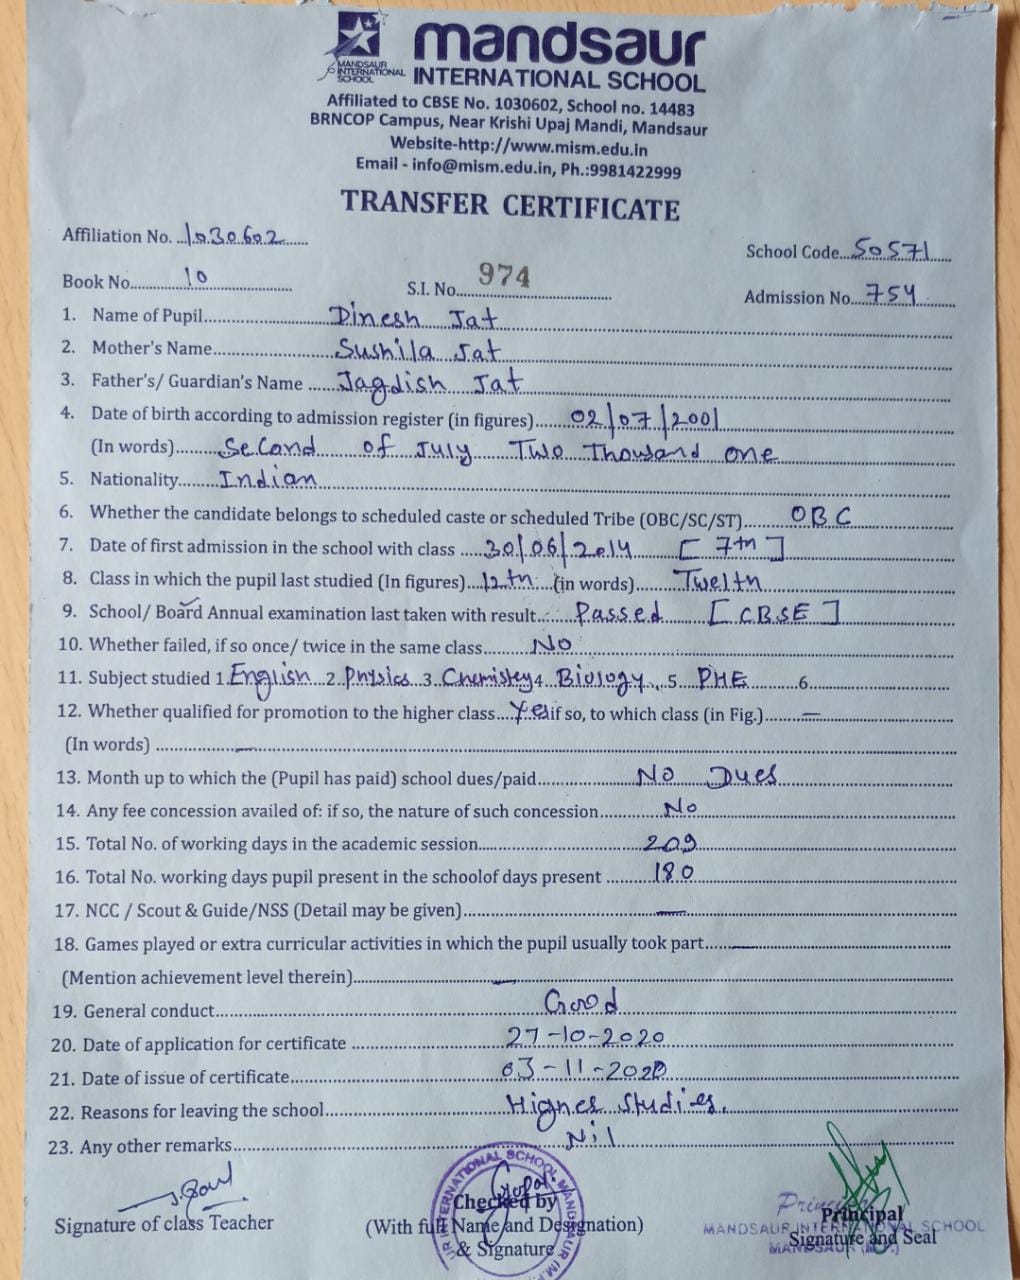 mandsaur
MANDSAUR
INTERNATIONAL
SCHOOL
INTERNATIONAL SCHOOL
Affiliated to CBSE No. 1030602, School no. 14483
BRNCOP Campus, Near Krishi Upaj Mandi, Mandsaur
Website-http://www.mism.edu.in
Email - info@mism.edu.in, Ph.:9981422999
TRANSFER CERTIFICATE
Affiliation No. 1030602 School Code 50571
Book No. 10 S.I. No. 974 Admission No. 754
1. Name of Pupil Dinesh Jat
2. Mother's Name Sushila Jat
3. Father's/ Guardian's Name Jagdish Jat
4. Date of birth according to admission register (in figures) 02/07/2001
(In words) Second of July Two Thousand one
5. Nationality Indian
6. Whether the candidate belongs to scheduled caste or scheduled Tribe (OBC/SC/ST) OBC
7. Date of first admission in the school with class 30/06/2014 [7th]
8. Class in which the pupil last studied (In figures) 12th (in words) Twelth
9. School/ Board Annual examination last taken with result Passed [CBSE]
10. Whether failed, if so once/ twice in the same class No
11. Subject studied 1. English 2. Physics 3. Chemistry 4. Biology 5. PHE 6.
12. Whether qualified for promotion to the higher class Yes if so, to which class (in Fig.) —
(In words) —
13. Month up to which the (Pupil has paid) school dues/paid No Dues
14. Any fee concession availed of: if so, the nature of such concession No
15. Total No. of working days in the academic session 209
16. Total No. working days pupil present in the schoolof days present 180
17. NCC / Scout & Guide/NSS (Detail may be given) —
18. Games played or extra curricular activities in which the pupil usually took part —
(Mention achievement level therein) —
19. General conduct Good
20. Date of application for certificate 27-10-2020
21. Date of issue of certificate 03-11-2020
22. Reasons for leaving the school Higher Studies.
23. Any other remarks Nil
Signature of class Teacher
Checked by
(With full Name and Designation)
& Signature
Principal
MANDSAUR INTERNATIONAL SCHOOL
MANDSAUR (M.P.)
Principal
Signature and Seal